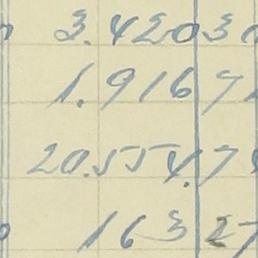 3.4203
1.9167
20.554.7
16327